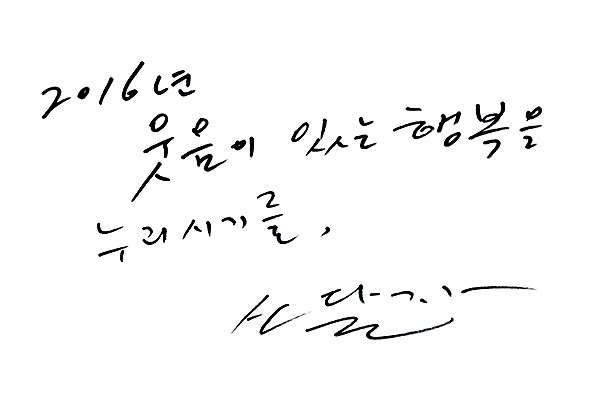 2016년
웃음이 있는 행복을
누리시기를,
신달자